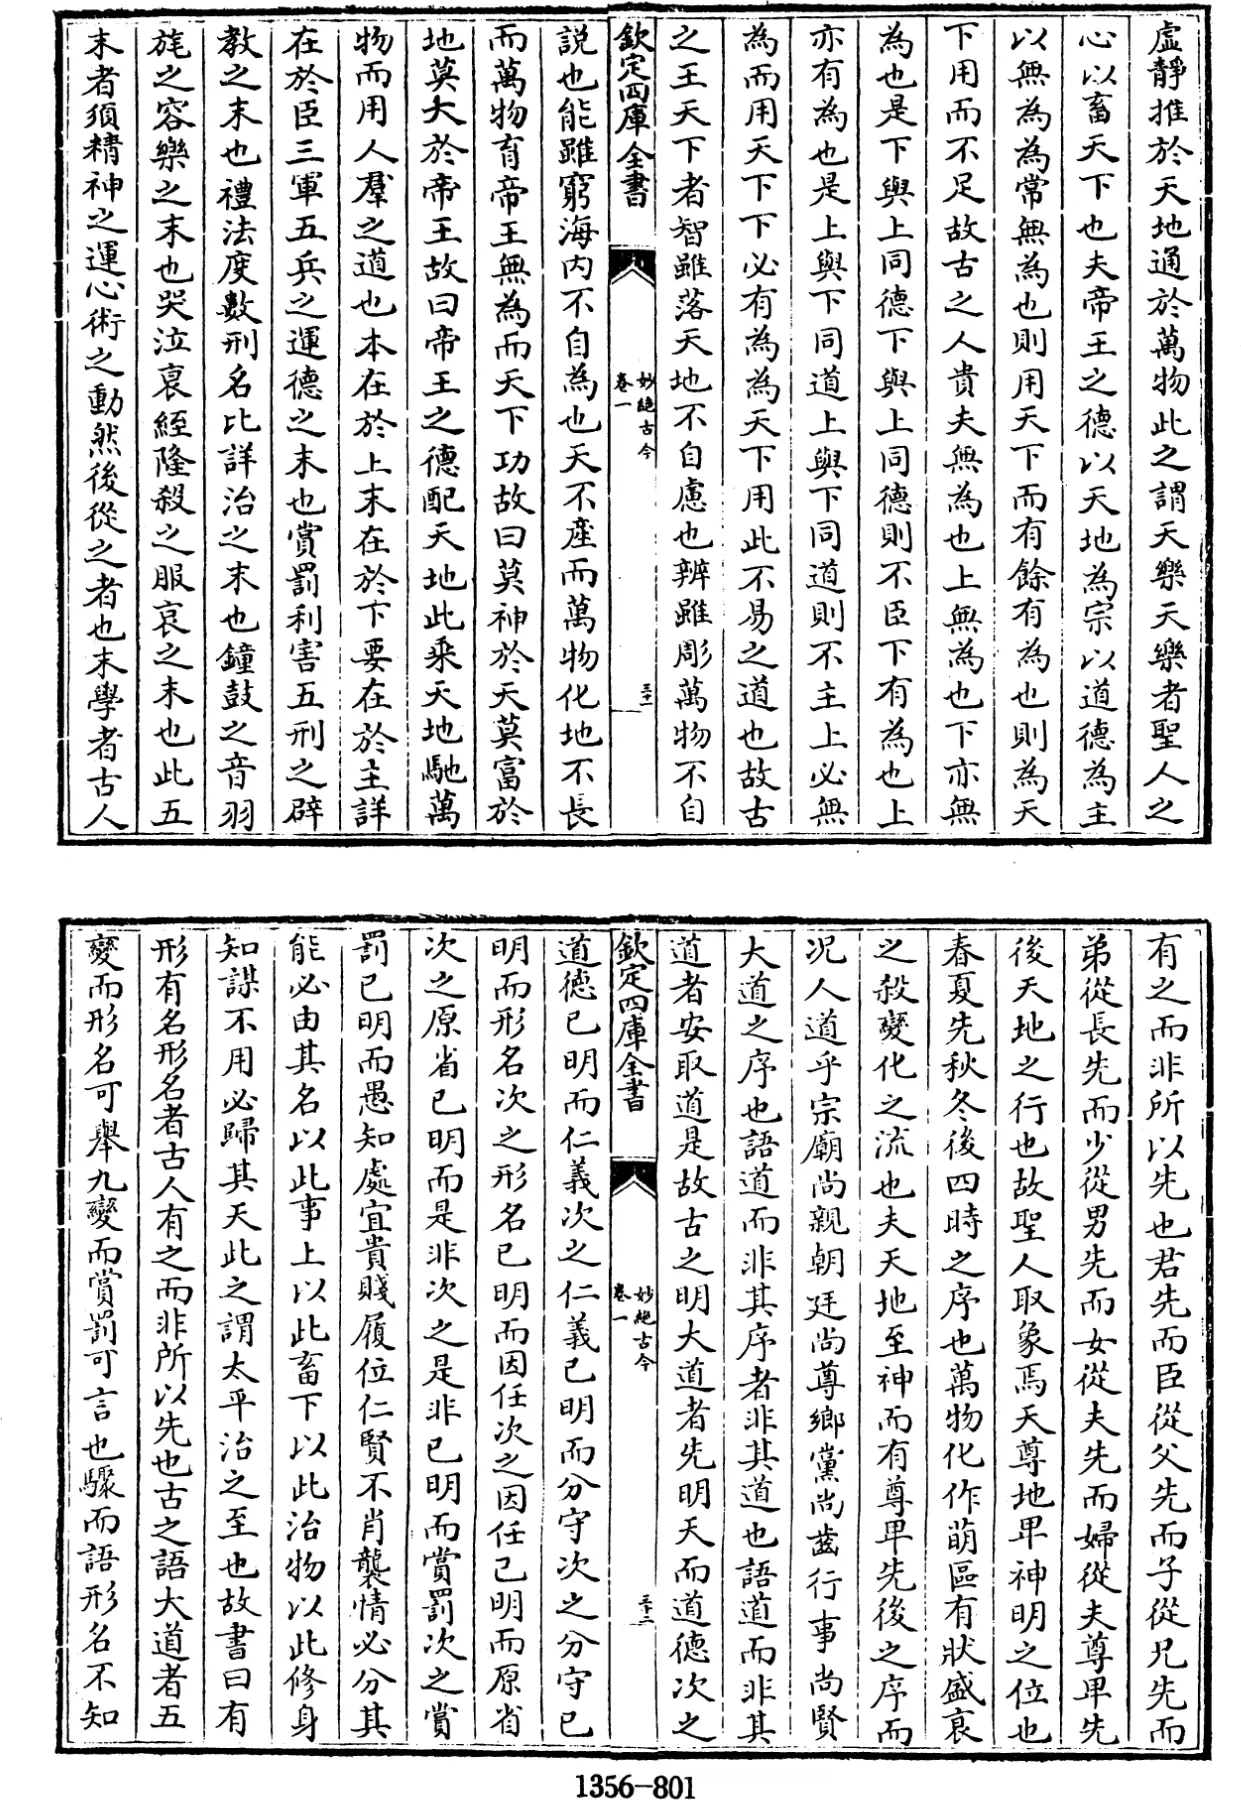 虛靜推於天地通於萬物此之謂天樂天樂者聖人之
心以畜天下也夫帝王之德以天地為宗以道德為主
以無為為常無為也則用天下而有餘有為也則為天
下用而不足故古之人貴夫無為也上無為也下亦無
為也是下與上同德下與上同德則不臣下有為也上
亦有為也是上與下同道上與下同道則不主上必無
為而用天下下必有為為天下用此不易之道也故古
之王天下者智雖落天地不自慮也辨雖彫萬物不自
欽定四庫全書
妙絶古今
卷一
三十一
説也能雖窮海内不自為也天不產而萬物化地不長
而萬物育帝王無為而天下功故曰莫神於天莫富於
地莫大於帝王故曰帝王之德配天地此乘天地馳萬
物而用人羣之道也本在於上末在於下要在於主詳
在於臣三軍五兵之運德之末也賞罰利害五刑之辟
教之末也禮法度數刑名比詳治之末也鐘鼓之音羽
旄之容樂之末也哭泣哀絰隆殺之服哀之末也此五
末者須精神之運心術之動然後從之者也末學者古人
有之而非所以先也君先而臣從父先而子從兄先而
弟從長先而少從男先而女從夫先而婦從夫尊卑先
後天地之行也故聖人取象焉天尊地卑神明之位也
春夏先秋冬後四時之序也萬物化作萌區有狀盛衰
之殺變化之流也夫天地至神而有尊卑先後之序而
况人道乎宗廟尚親朝廷尚尊鄉黨尚齒行事尚賢
大道之序也語道而非其序者非其道也語道而非其
道者安取道是故古之明大道者先明天而道德次之
欽定四庫全書
妙絶古今
卷一
三十二
道德已明而仁義次之仁義已明而分守次之分守已
明而形名次之形名已明而因任次之因任已明而原省
次之原省已明而是非次之是非已明而賞罰次之賞
罰已明而愚知處宜貴賤履位仁賢不肖襲情必分其
能必由其名以此事上以此畜下以此治物以此修身
知謀不用必歸其天此之謂太平治之至也故書曰有
形有名形名者古人有之而非所以先也古之語大道者五
變而形名可舉九變而賞罰可言也驟而語形名不知
1356-801